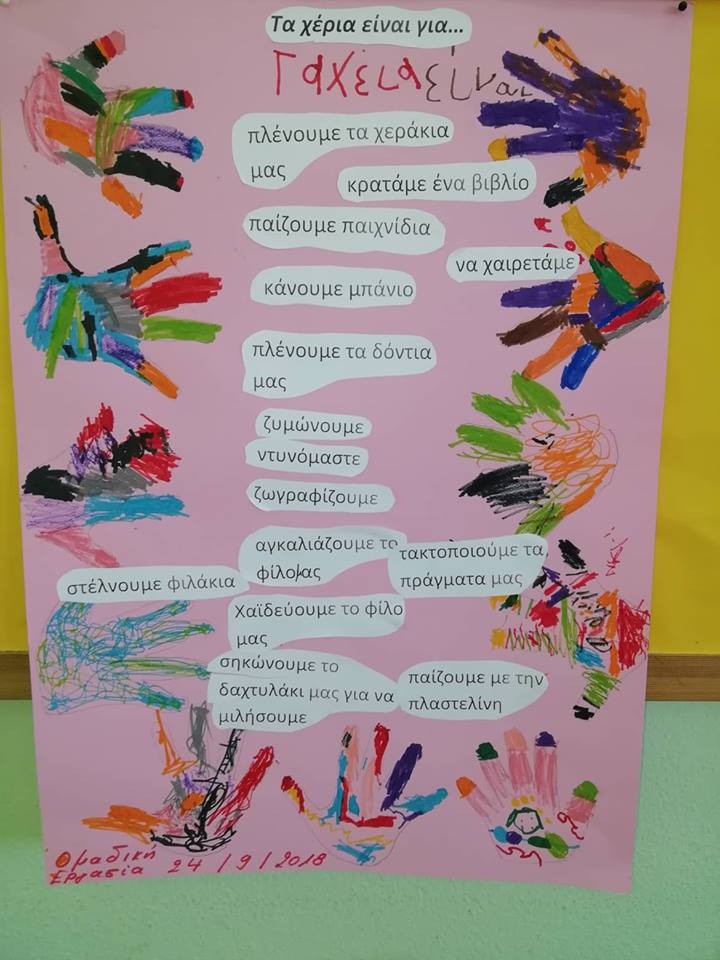 Τα χέρια είναι για...
Γαχεια είναι
πλένουμε τα χεράκια
μας
κρατάμε ένα βιβλίο
παίζουμε παιχνίδια
να χαιρετάμε
κάνουμε μπάνιο
πλένουμε τα δόντια
μας
ζυμώνουμε
ντυνόμαστε
ζωγραφίζουμε
αγκαλιάζουμε το
φίλομας
τακτοποιούμε τα
πράγματα μας
στέλνουμε φιλάκια
Χαϊδεύουμε το φίλο
μας
σηκώνουμε το
δαχτυλάκι μας για να
μιλήσουμε
παίζουμε με την
πλαστελίνη
Ομαδική
Εργασία 24/9/2018